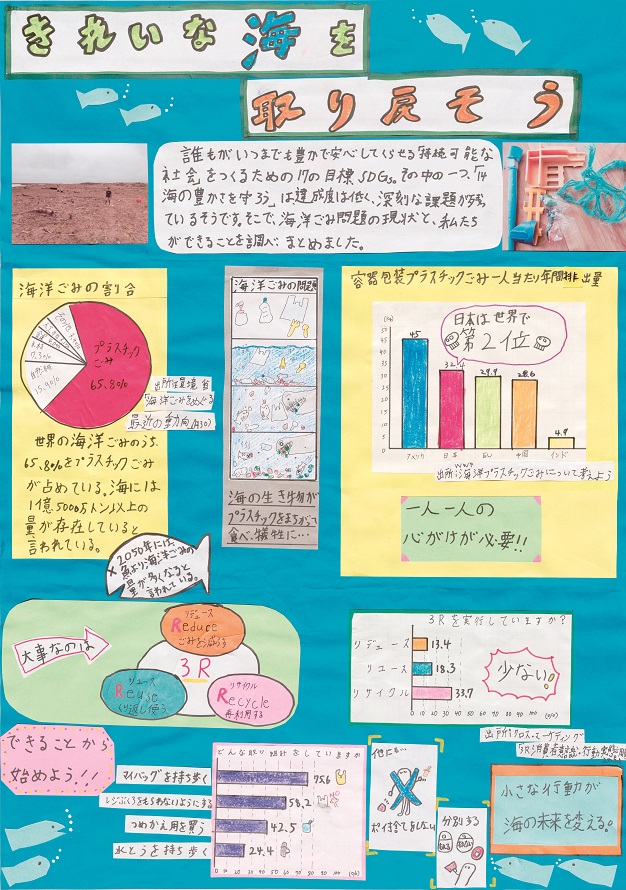 きれいな海を
取り戻そう
誰もがいつまでも豊かで安心してくらせる「持続可能な
社会」をつくるための17の目標SDGs。その中の一つ、「14
海の豊かさを守ろう」は達成度は低く、深刻な課題が残っ
ているそうです。そこで、海洋ごみ問題の現状と、私たち
ができることを調べ、まとめました。
海洋ごみの割合
プラスチック
ごみ
65.8%
その他
木材
7.3%
自然物
15.9%
出所:環境省
「海洋ごみをめぐる
最近の動向」
世界の海洋ごみのうち、
65.8%をプラスチックごみ
が占めている。海には
1億5000万トン以上の
量が存在していると
言われている。
海洋ごみの問題
海の生き物が
プラスチックをまちがって
食べ、犠牲に…
容器包装プラスチックごみ一人当たり年間排出量
(kg)
50
45
40
35
30
25
20
15
10
5
0
日本は世界で
第2位
45
32.4
29.9
28.6
4.9
アメリカ
日本
EU
中国
インド
出所:WWF 海洋プラスチックごみについて考えよう
一人一人の
心がけが必要!!
※2050年には、
魚より海洋ごみの
量が多くなると
言われている。
大事なのは
リデュース
Reduce
ごみを減らす
3R
リユース
Reuse
くり返し使う
リサイクル
Recycle
再利用する
3Rを実行していますか?
リデュース 13.4
リユース 18.3
リサイクル 33.7
0 10 20 30 40 50 60 70 80 90 100 (%)
少ない!
出所:クロス・マーケティング
できることから
始めよう!!
どんな取り組みをしていますか
マイバッグを持ち歩く 75.6
レジぶくろをもらわないようにする 58.2
つめかえ用を買う 42.5
水とうを持ち歩く 24.4
0 10 20 30 40 50 60 70 80 90 100 (%)
他にも…
ポイ捨てをしない
分別する
小さな行動が
海の未来を変える。